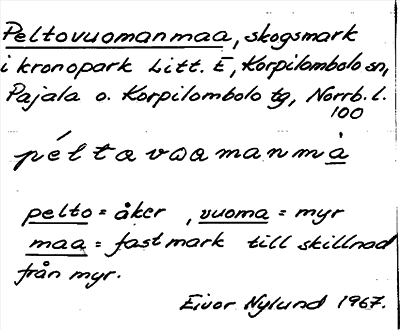 Peltovuomanmaa, skogsmark
i kronopark Litt. E, Korpilombolo sn,
Pajala o. Korpilombolo tg, Norrb. l.
100
péltavuamanmà
pelto = åker , vuoma = myr
maa = fastmark till skillnad
från myr.
Eivor Nylund 1967.